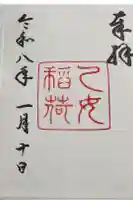 奉拝
乙女
稲荷
令和八年一月十日